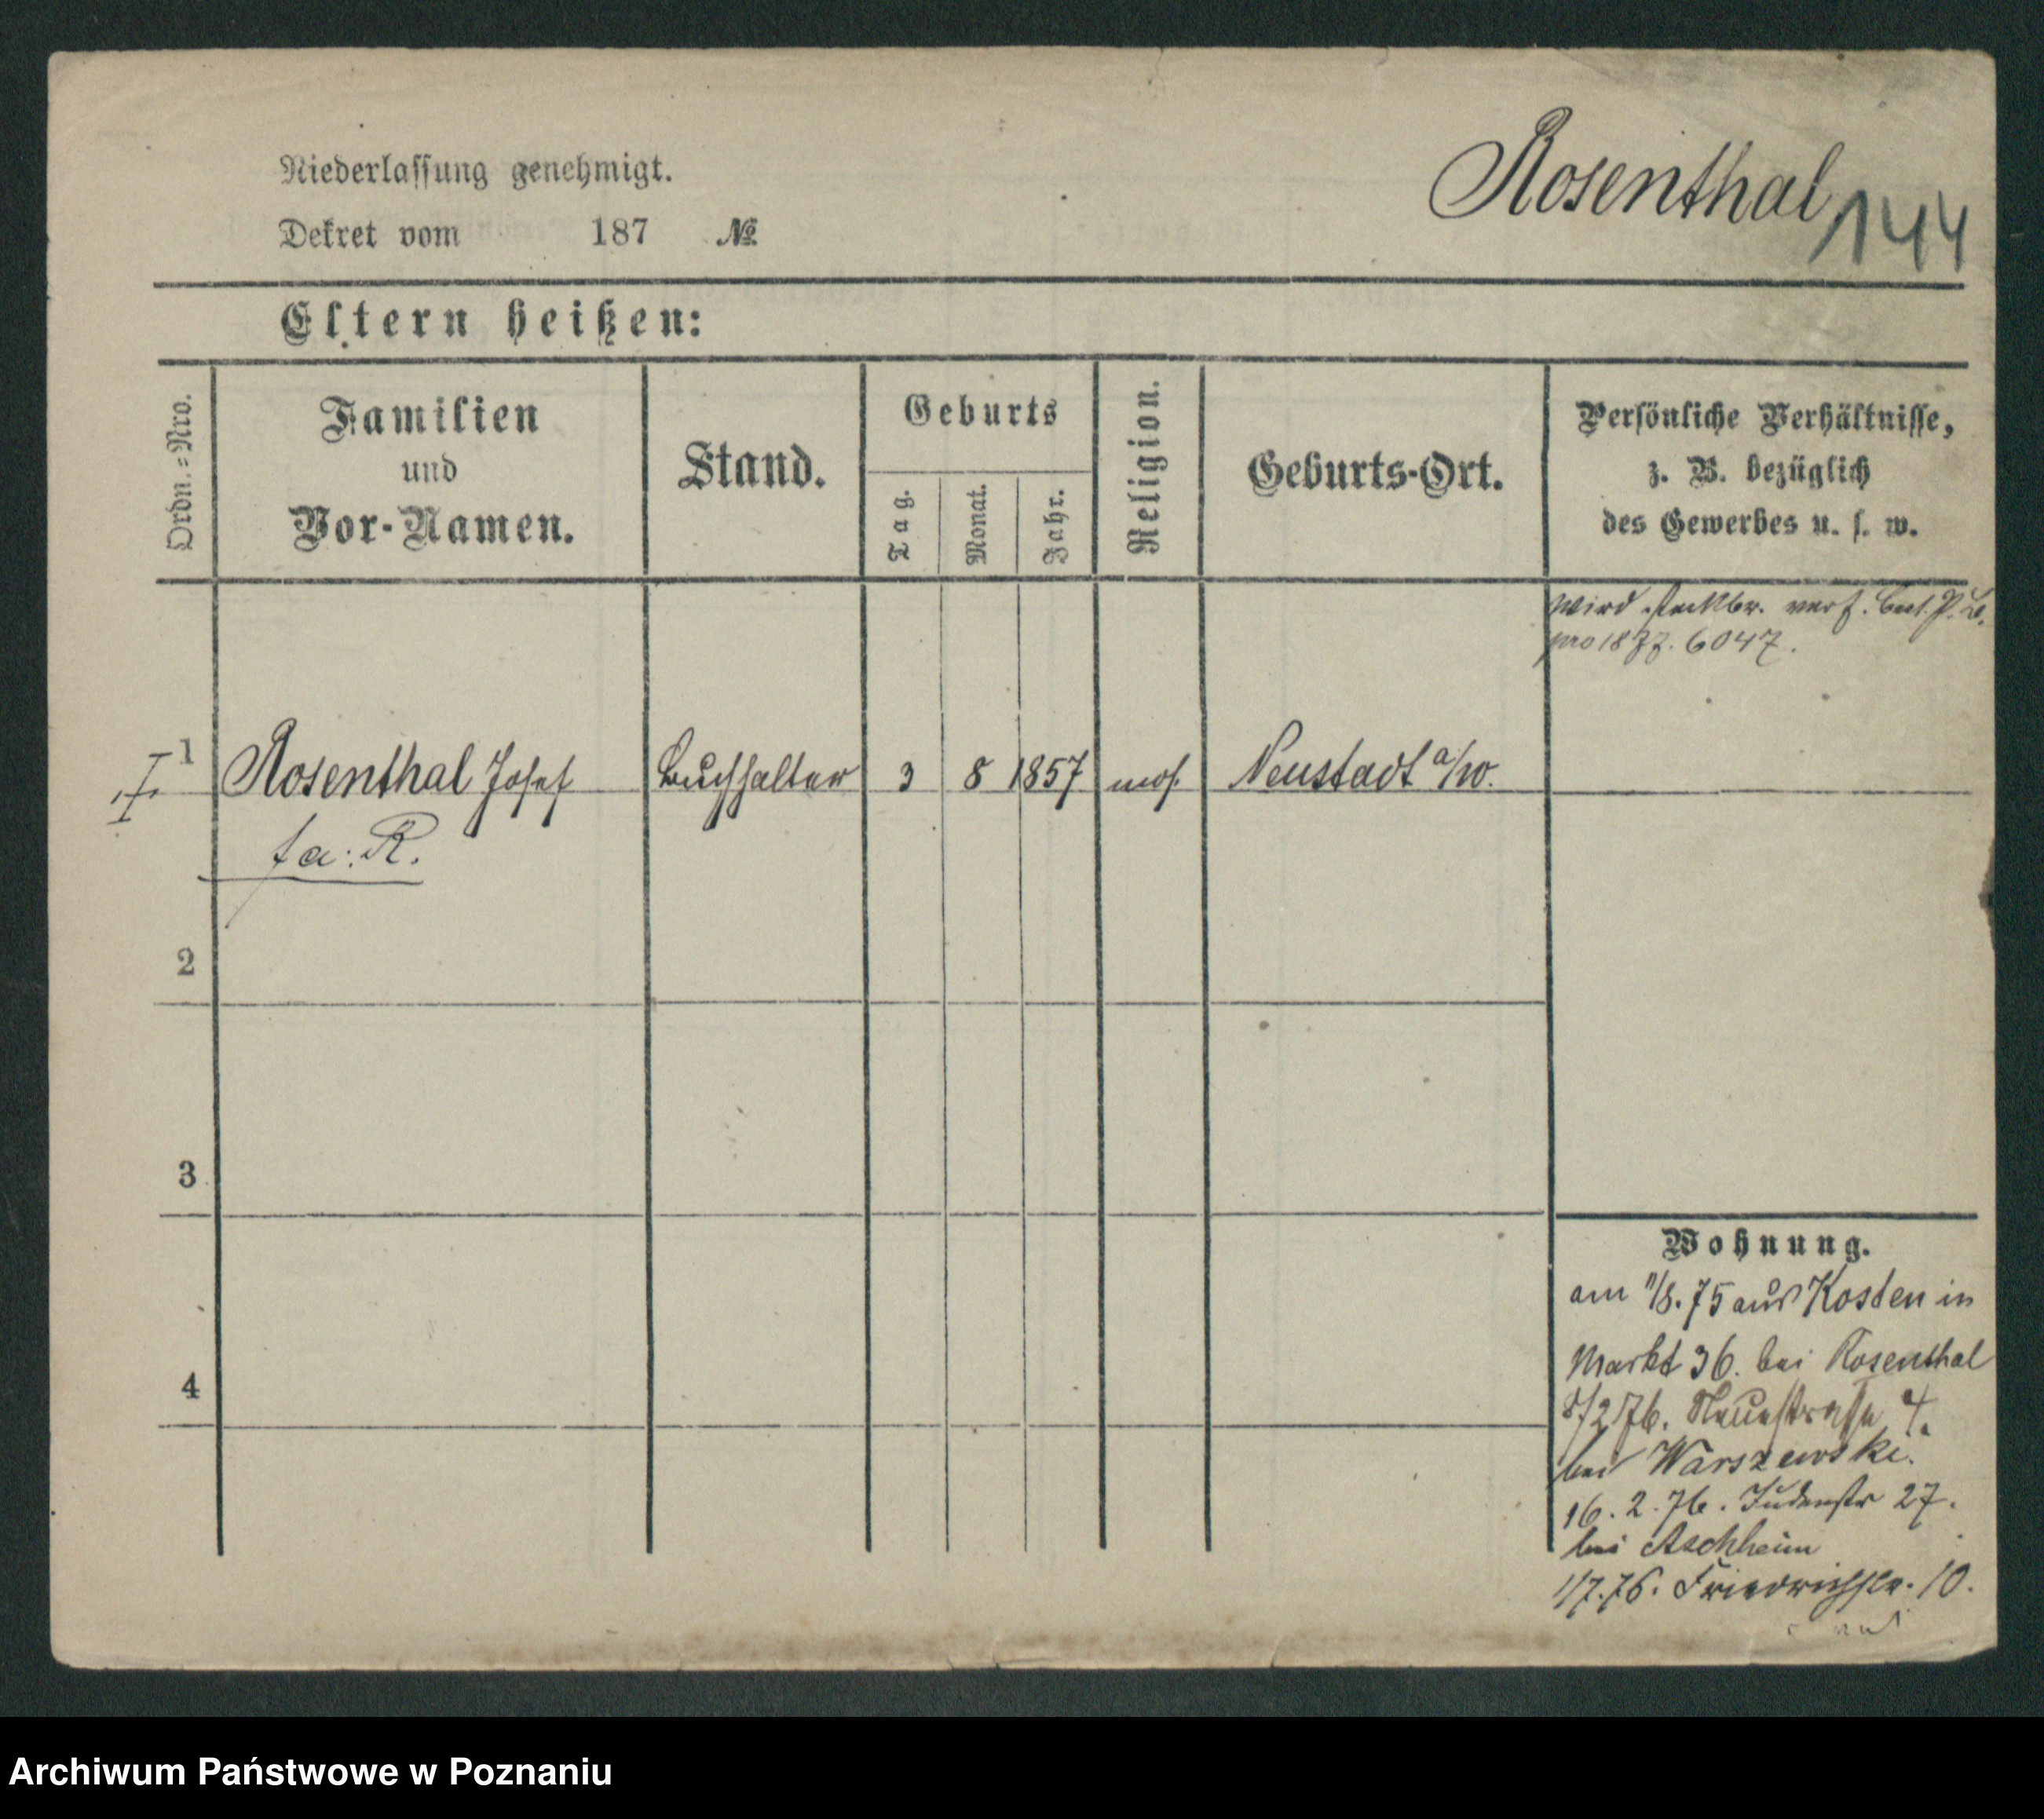 Niederlassung genehmigt.
Dekret vom 187 №
Rosenthal
144
Eltern heißen:
Ordn.=Nro.
Familien
und
Vor-Namen.
Stand.
Geburts
Tag.
Monat.
Jahr.
Religion.
Geburts-Ort.
Persönliche Verhältnisse,
z. B. bezüglich
des Gewerbes u. s. w.
wird steckbr. verf.
pro 1877. 6047.
1
I
Rosenthal Josef Buchhalter 3 8 1857 mos. Neustadt a/W.
fa: R.
2
3
4
Wohnung.
am 11/8. 75 aus Kosten in
Markt 36. bei Rosenthal
8/2 76. Neuestrasse 4.
bei Warszewski.
16. 2. 76. Judenstr 27.
bei Aschheim
1/7.76. Friedrichstr. 10.
Archiwum Państwowe w Poznaniu